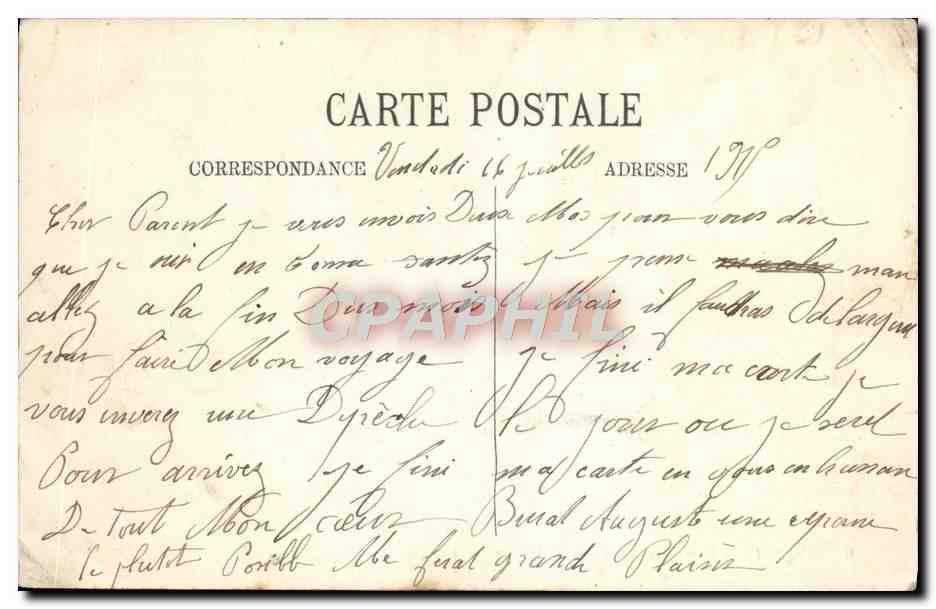 CARTE POSTALE
CORRESPONDANCE Vendredi 16 juills ADRESSE
Cher Parent je vous envois Deux Mos pour vous dire
que je suis en bonne santez je pense man
allez a la fin Du mois Mais il faudras de largens
pour faire Mon voyage je fini ma carte je
vous enverez une Dépêche le jour ou je seret
Pour arrivez je fini ma carte en vous enbrasan
De Tout Mon cœur Auguste une reponse
le plutot Posible Me ferat grande Plaisir
CPAPHIL